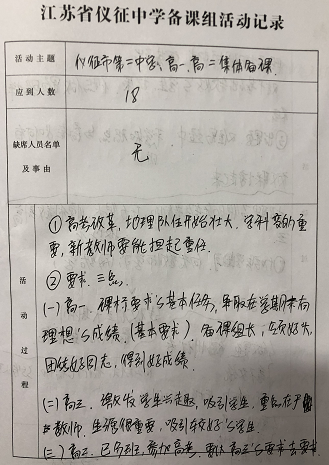 江苏省仪征中学备课组活动记录
活动主题
仪征市第二中学、高一、高二集体备课
应到人数
18
缺席人员名单
及事由
无
活动过程
①高考改革,地理队伍开始壮大,学科变的重
要,新教师要能担起重任
②要求:三点
(一)高一 课标要求与基本任务,争取在学期末有
理想的成绩(基本要求)备课组长
团结好同志,得到好成绩.
(二)高二 激发学生兴趣,吸引学生.重点在
教师 生源很重要,吸引较好的学生.
(三)高三 参加高考,要以高三的要求去要求